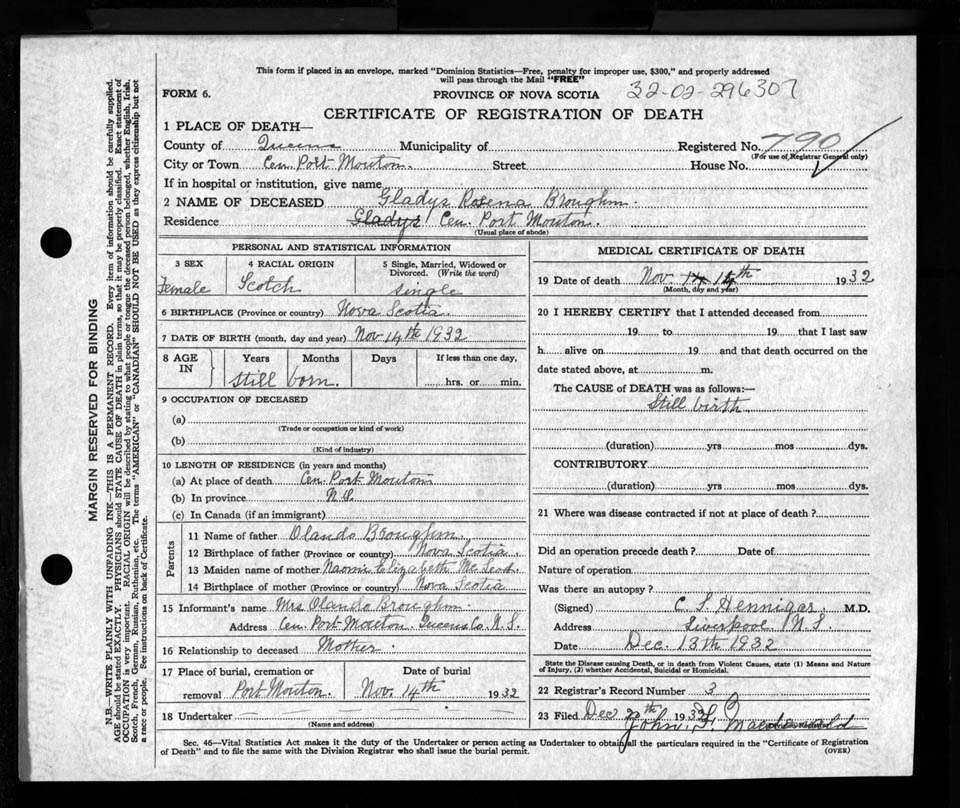 This form if placed in an envelope, marked "Dominion Statistics—Free, penalty for improper use, $300," and properly addressed
will pass through the Mail "FREE"
FORM 6.
PROVINCE OF NOVA SCOTIA 32-02-296307
CERTIFICATE OF REGISTRATION OF DEATH
1 PLACE OF DEATH—
County of Queens Municipality of Registered No. 790
(For use of Registrar General only)
City or Town Cen. Port Mouton. Street House No.
If in hospital or institution, give name
2 NAME OF DECEASED Gladys Rosena Broughm.
Residence Gladys Cen. Port Mouton.
(Usual place of abode)
PERSONAL AND STATISTICAL INFORMATION
3 SEX 4 RACIAL ORIGIN 5 Single, Married, Widowed or
Divorced. (Write the word)
Female Scotch single
6 BIRTHPLACE (Province or country) Nova Scotia
7 DATE OF BIRTH (month, day and year) Nov 14th 1932
8 AGE IN Years Months Days If less than one day,
Still born. hrs. or min.
9 OCCUPATION OF DECEASED
(a)
(Trade or occupation or kind of work)
(b)
(Kind of industry)
10 LENGTH OF RESIDENCE (in years and months)
(a) At place of death Cen. Port Mouton
(b) In province N.S.
(c) In Canada (if an immigrant)
Parents
11 Name of father Olando Broughm.
12 Birthplace of father (Province or country) Nova Scotia.
13 Maiden name of mother Naomi Elizabeth McLeod
14 Birthplace of mother (Province or country) Nova Scotia
15 Informant's name Mrs. Olando Broughm.
Address Cen. Port Mouton. Queens Co. N.S.
16 Relationship to deceased Mother.
17 Place of burial, cremation or Date of burial
removal Port Mouton. Nov. 14th 1932
18 Undertaker
(Name and address)
MEDICAL CERTIFICATE OF DEATH
19 Date of death Nov. 14th 1932
(Month, day and year)
20 I HEREBY CERTIFY that I attended deceased from
19 to 19 that I last saw
h alive on 19 and that death occurred on the
date stated above, at m.
The CAUSE of DEATH was as follows:—
Still birth
(duration) yrs mos dys.
CONTRIBUTORY
(duration) yrs mos dys.
21 Where was disease contracted if not at place of death?
Did an operation precede death? Date of
Nature of operation
Was there an autopsy?
(Signed) C. S. Hennigar. M.D.
Address Liverpool N.S.
Date Dec. 13th 1932
State the Disease causing Death, or in death from Violent Causes, state (1) Means and Nature
of Injury, (2) whether Accidental, Suicidal or Homicidal.
22 Registrar's Record Number 3
23 Filed Dec 1932 John
Sec. 46—Vital Statistics Act makes it the duty of the Undertaker or person acting as Undertaker to obtain all the particulars required in the "Certificate of Registration
of Death" and to file the same with the Division Registrar who shall issue the burial permit.
(OVER)
MARGIN RESERVED FOR BINDING
N.B.—WRITE PLAINLY WITH UNFADING INK—THIS IS A PERMANENT RECORD. Every item of information should be carefully supplied.
AGE should be stated EXACTLY. PHYSICIANS should STATE CAUSE OF DEATH in plain terms, so that it may be properly classified. Exact statement of
OCCUPATION is very important. RACIAL ORIGIN will be described by stating to what people or tongue the deceased person belonged, whether English, Irish,
Scotch, French, German, Russian, Ruthenian, etc. The terms "AMERICAN" or "CANADIAN" SHOULD NOT BE USED as they express citizenship but not
a race or people. See instructions on back of Certificate.